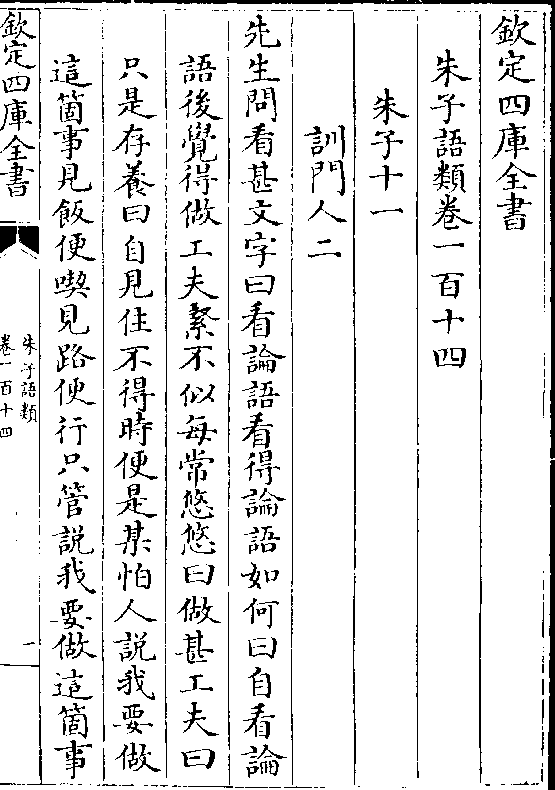 欽定四庫全書
朱子語類卷一百十四
朱子十一
訓門人二
先生問看甚文字曰看論語看得論語如何曰自看論
語後覺得做工夫緊不似每常悠悠曰做甚工夫曰
只是存養曰自見住不得時便是某怕人說我要做
這箇事見飯便喫見路便行只管說我要做這箇事
欽定四庫全書
朱子語類
卷一百十四
一